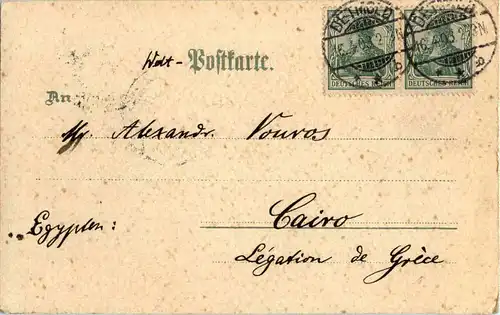 DETMOLD DETMOLD
DEUTSCHES REICH DEUTSCHES REICH
Wdt - Postkarte.
An
Mr. Alexandr. Vouros
Cairo
Egypten:
Légation de Grèce